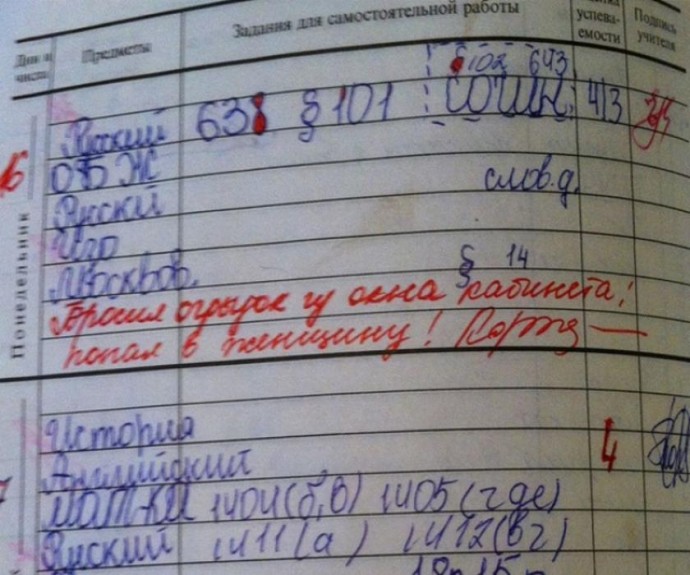 Дни и числа
Предметы
Задания для самостоятельной работы
успева-
емости
Подпись
учителя
102 643
16
Понедельник
Русский 638 § 101 сочин. 4/3
ОБЖ
Русскй слов.д.
Изо
Москвов. § 14
Бросил огрызок из окна кабинета!
попал в женщину!
История
Английский 4
мат-ка 1404(б,в) 1405(где)
Руский 1411(а) 1412(вг)